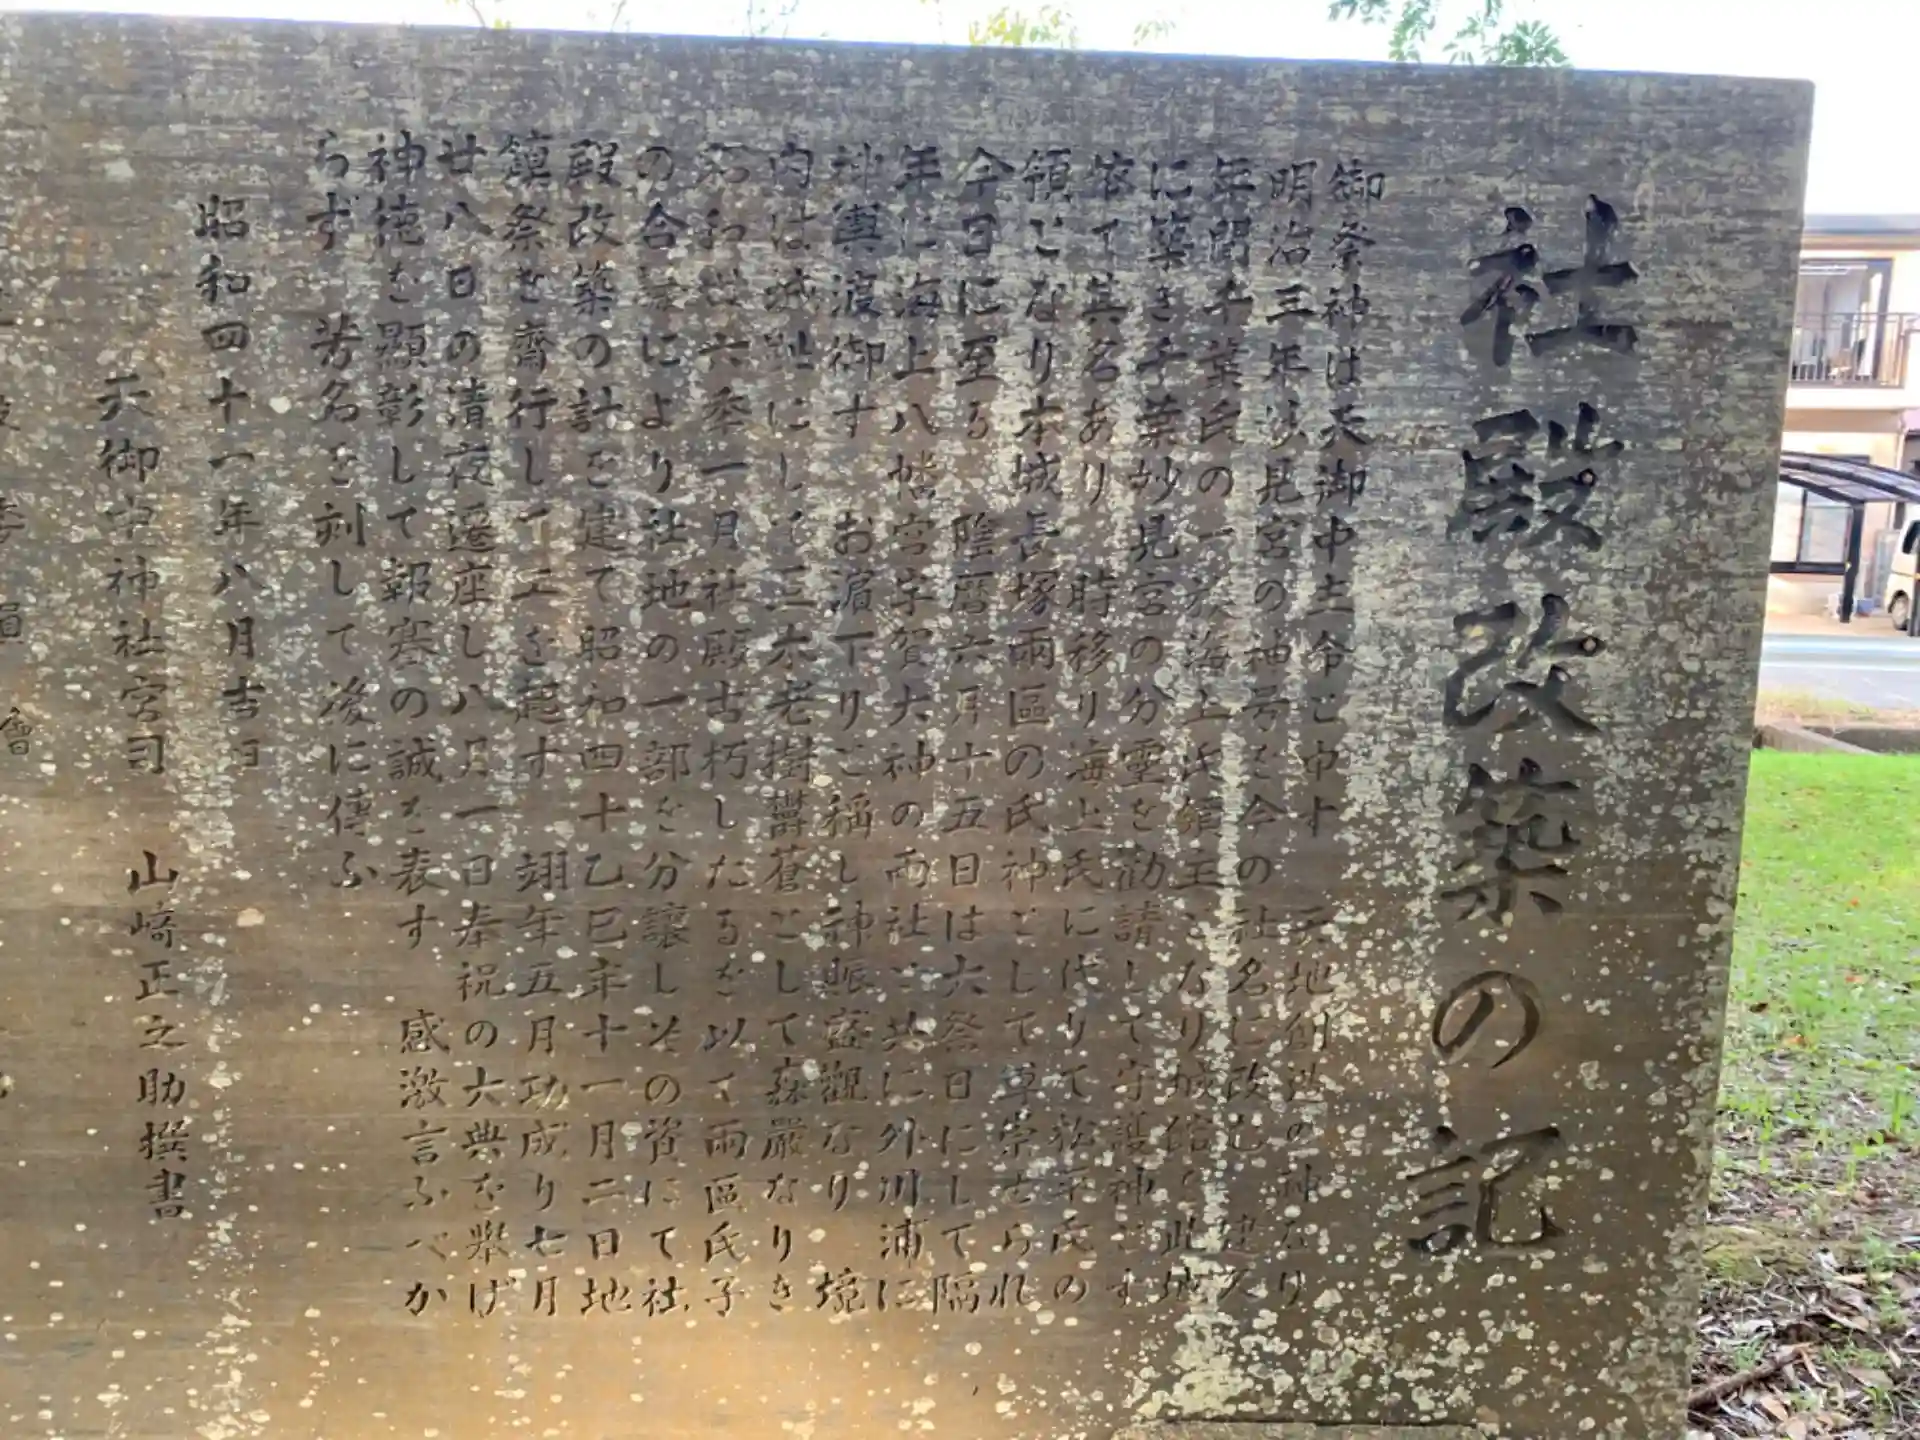 社殿改築の記
御祭神は天御中主命と申す 天地創造の神なり
明治三年妙見宮の神号を今の社名に改む 建久
年間千葉氏の一族海上氏領主となり城館を此地
に築き千葉妙見宮の分霊を勧請して守護神とす
依て其名あり 時移り海上氏に代りて松平氏の
領となり本城長塚兩區の氏神として尊崇せられ
今日に至る 陰暦六月十五日は大祭日にして隔
年に海上八幡宮宇賀大神の両社と共に外川浦に
神輿渡御す お濵下りと稱し神賑盛觀なり 境
内は城趾にして三木老樹欝蒼として森嚴なりき
昭和卅六年一月社殿古朽したるを以て兩區氏子
の合議により社地の一部を分譲しその資にて社
殿改築の計を建て昭和四十乙巳年十一月二日地
鎮祭を齋行して工を起す 翊年五月功成り七月
廿八日の清夜遷座し八月一日奉祝の大典を挙げ
神徳を顯彰して報寒の誠を表す 感激言ふべか
らず 芳名を刻して後に傳ふ
昭和四十一年八月吉日
天御中神社宮司 山崎正之助撰書
會